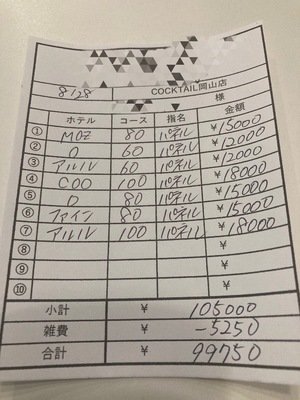 8/28
COCKTAIL岡山店
様
ホテル コース 指名 金額
① MOZ 80 パネル ¥15000
② O 60 パネル ¥12000
③ アルル 60 パネル ¥12000
④ COO 100 パネル ¥18000
⑤ O 80 パネル ¥15000
⑥ ファイン 80 パネル ¥15000
⑦ アルル 100 パネル ¥18000
⑧ ¥
⑨ ¥
⑩ ¥
小計 ¥ 105000
雑費 ¥ -5250
合計 ¥ 99750